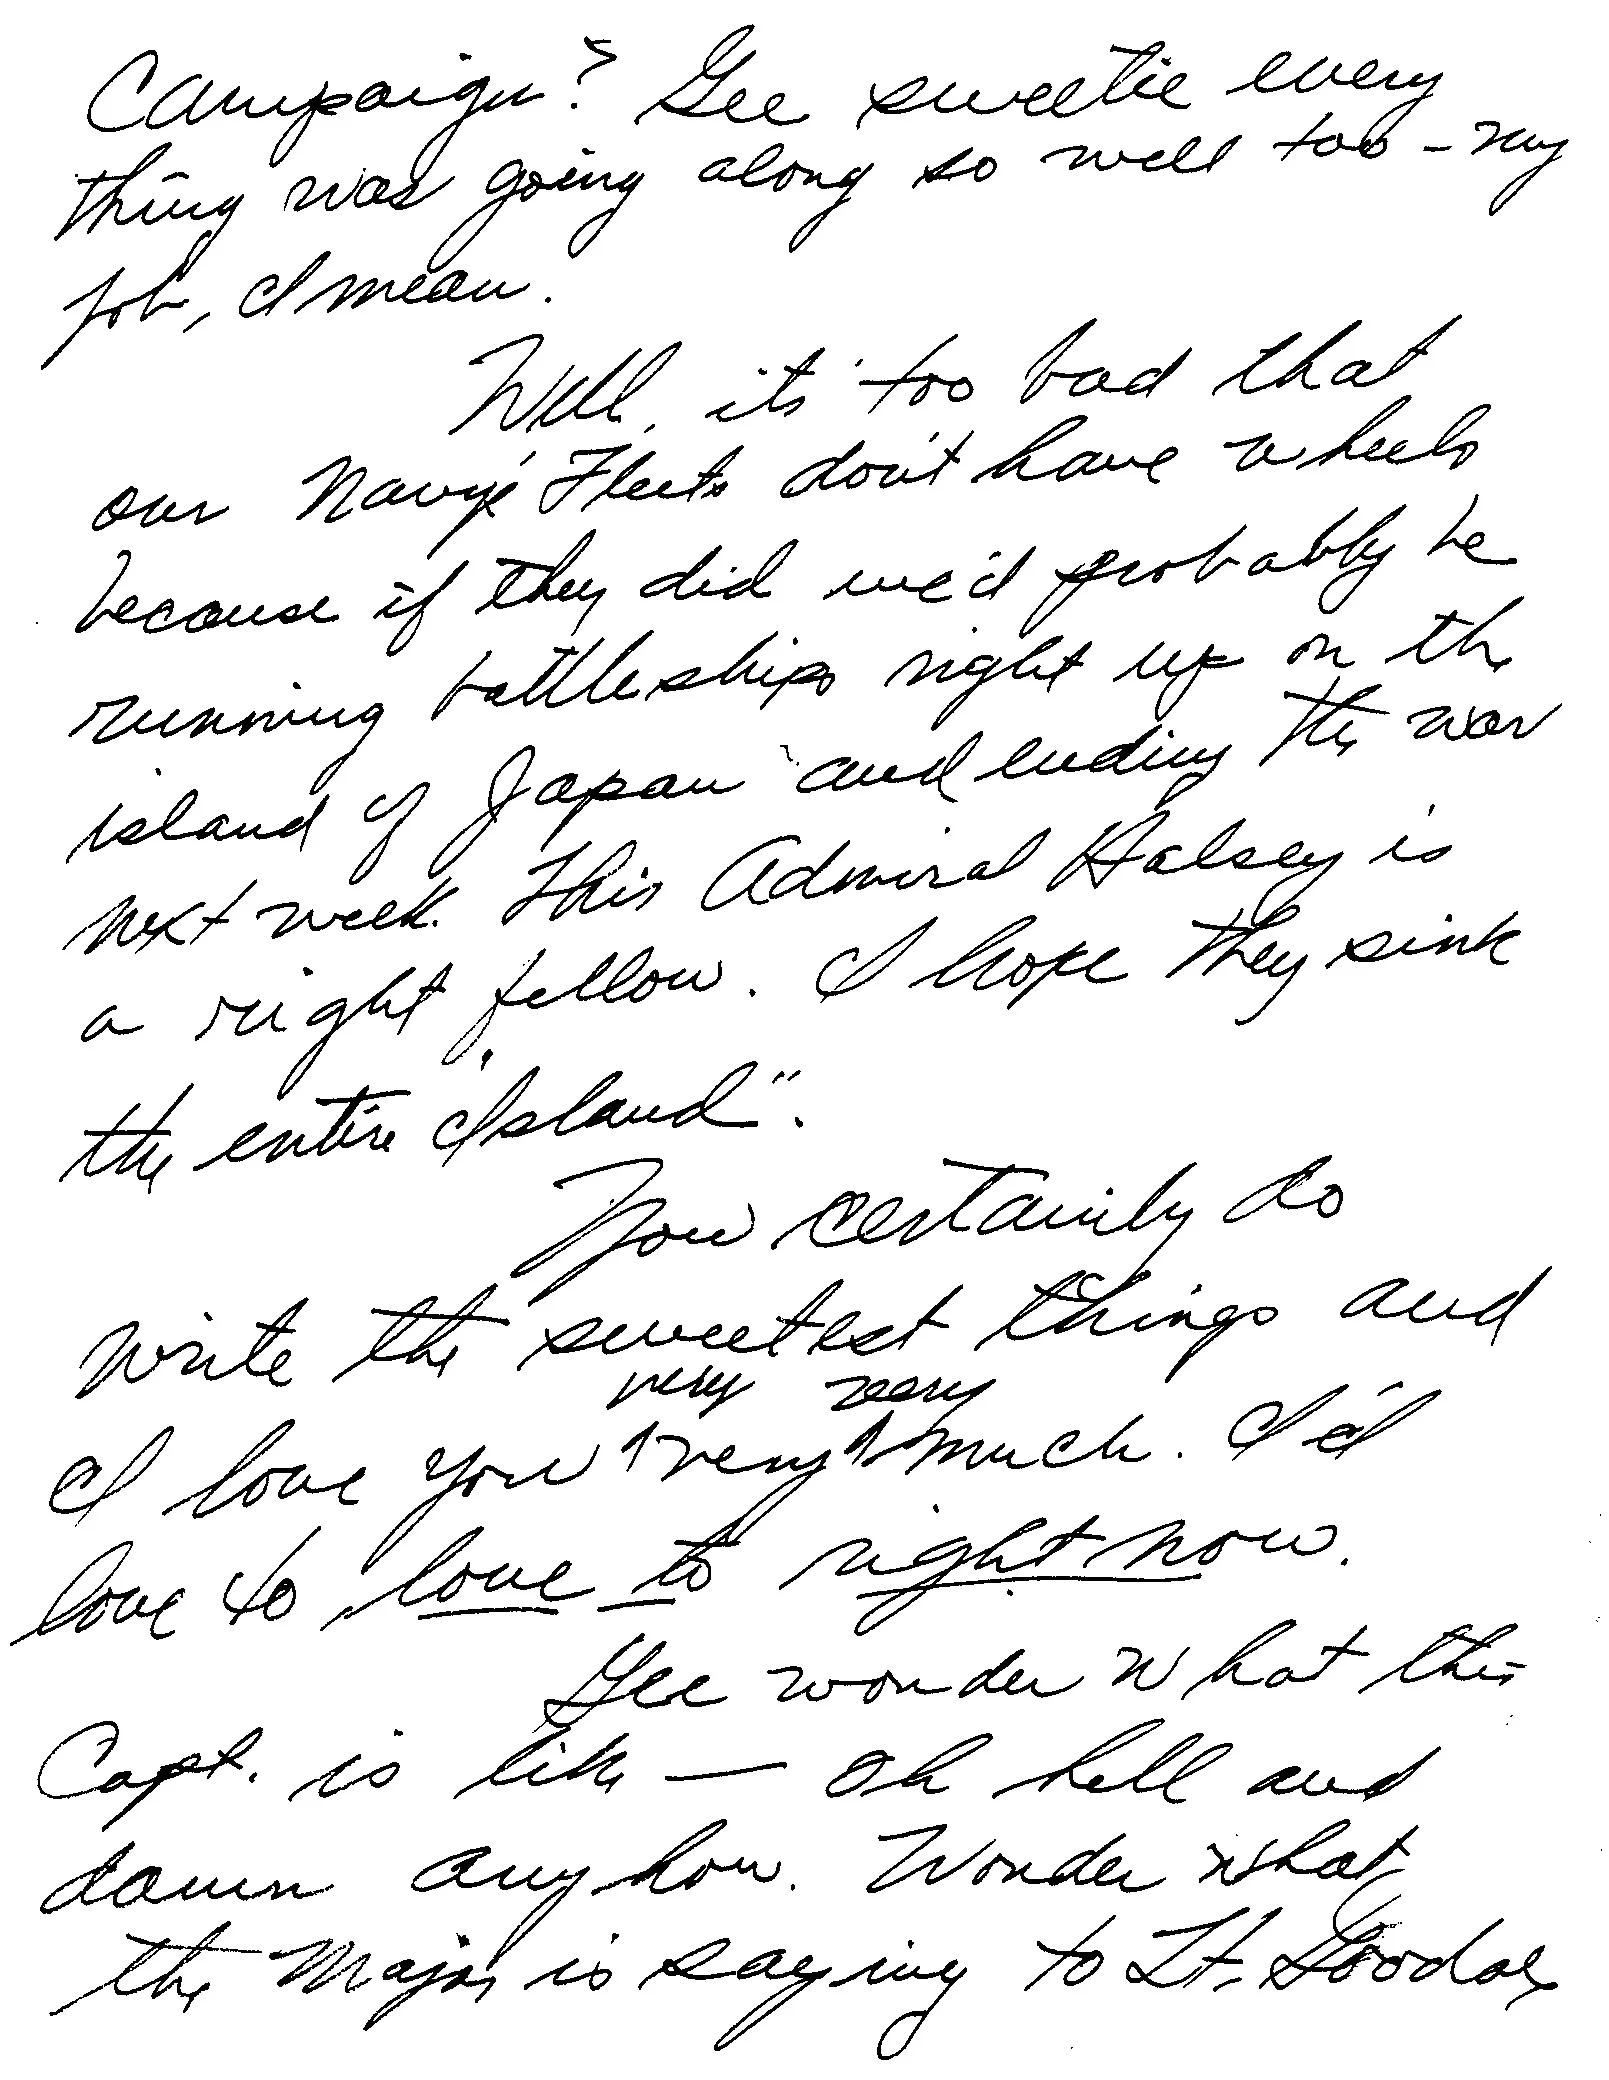 Campaign? Gee sweetie every
thing was going along so well too - my
job, I mean.
Well, it's too bad that
our Navy's Fleets don't have wheels
because if they did we'd probably be
running battleships right up on the
island of Japan and ending the war
next week. This Admiral Halsey is
a right fellow. I hope they sink
the entire "Island".
You certainly do
write the sweetest things and
very very
I love you very much. I'd
love to love to right now.
Gee wonder what this
Capt. is like — oh hell and
damn anyhow. Wonder what
the Major is saying to Lt.